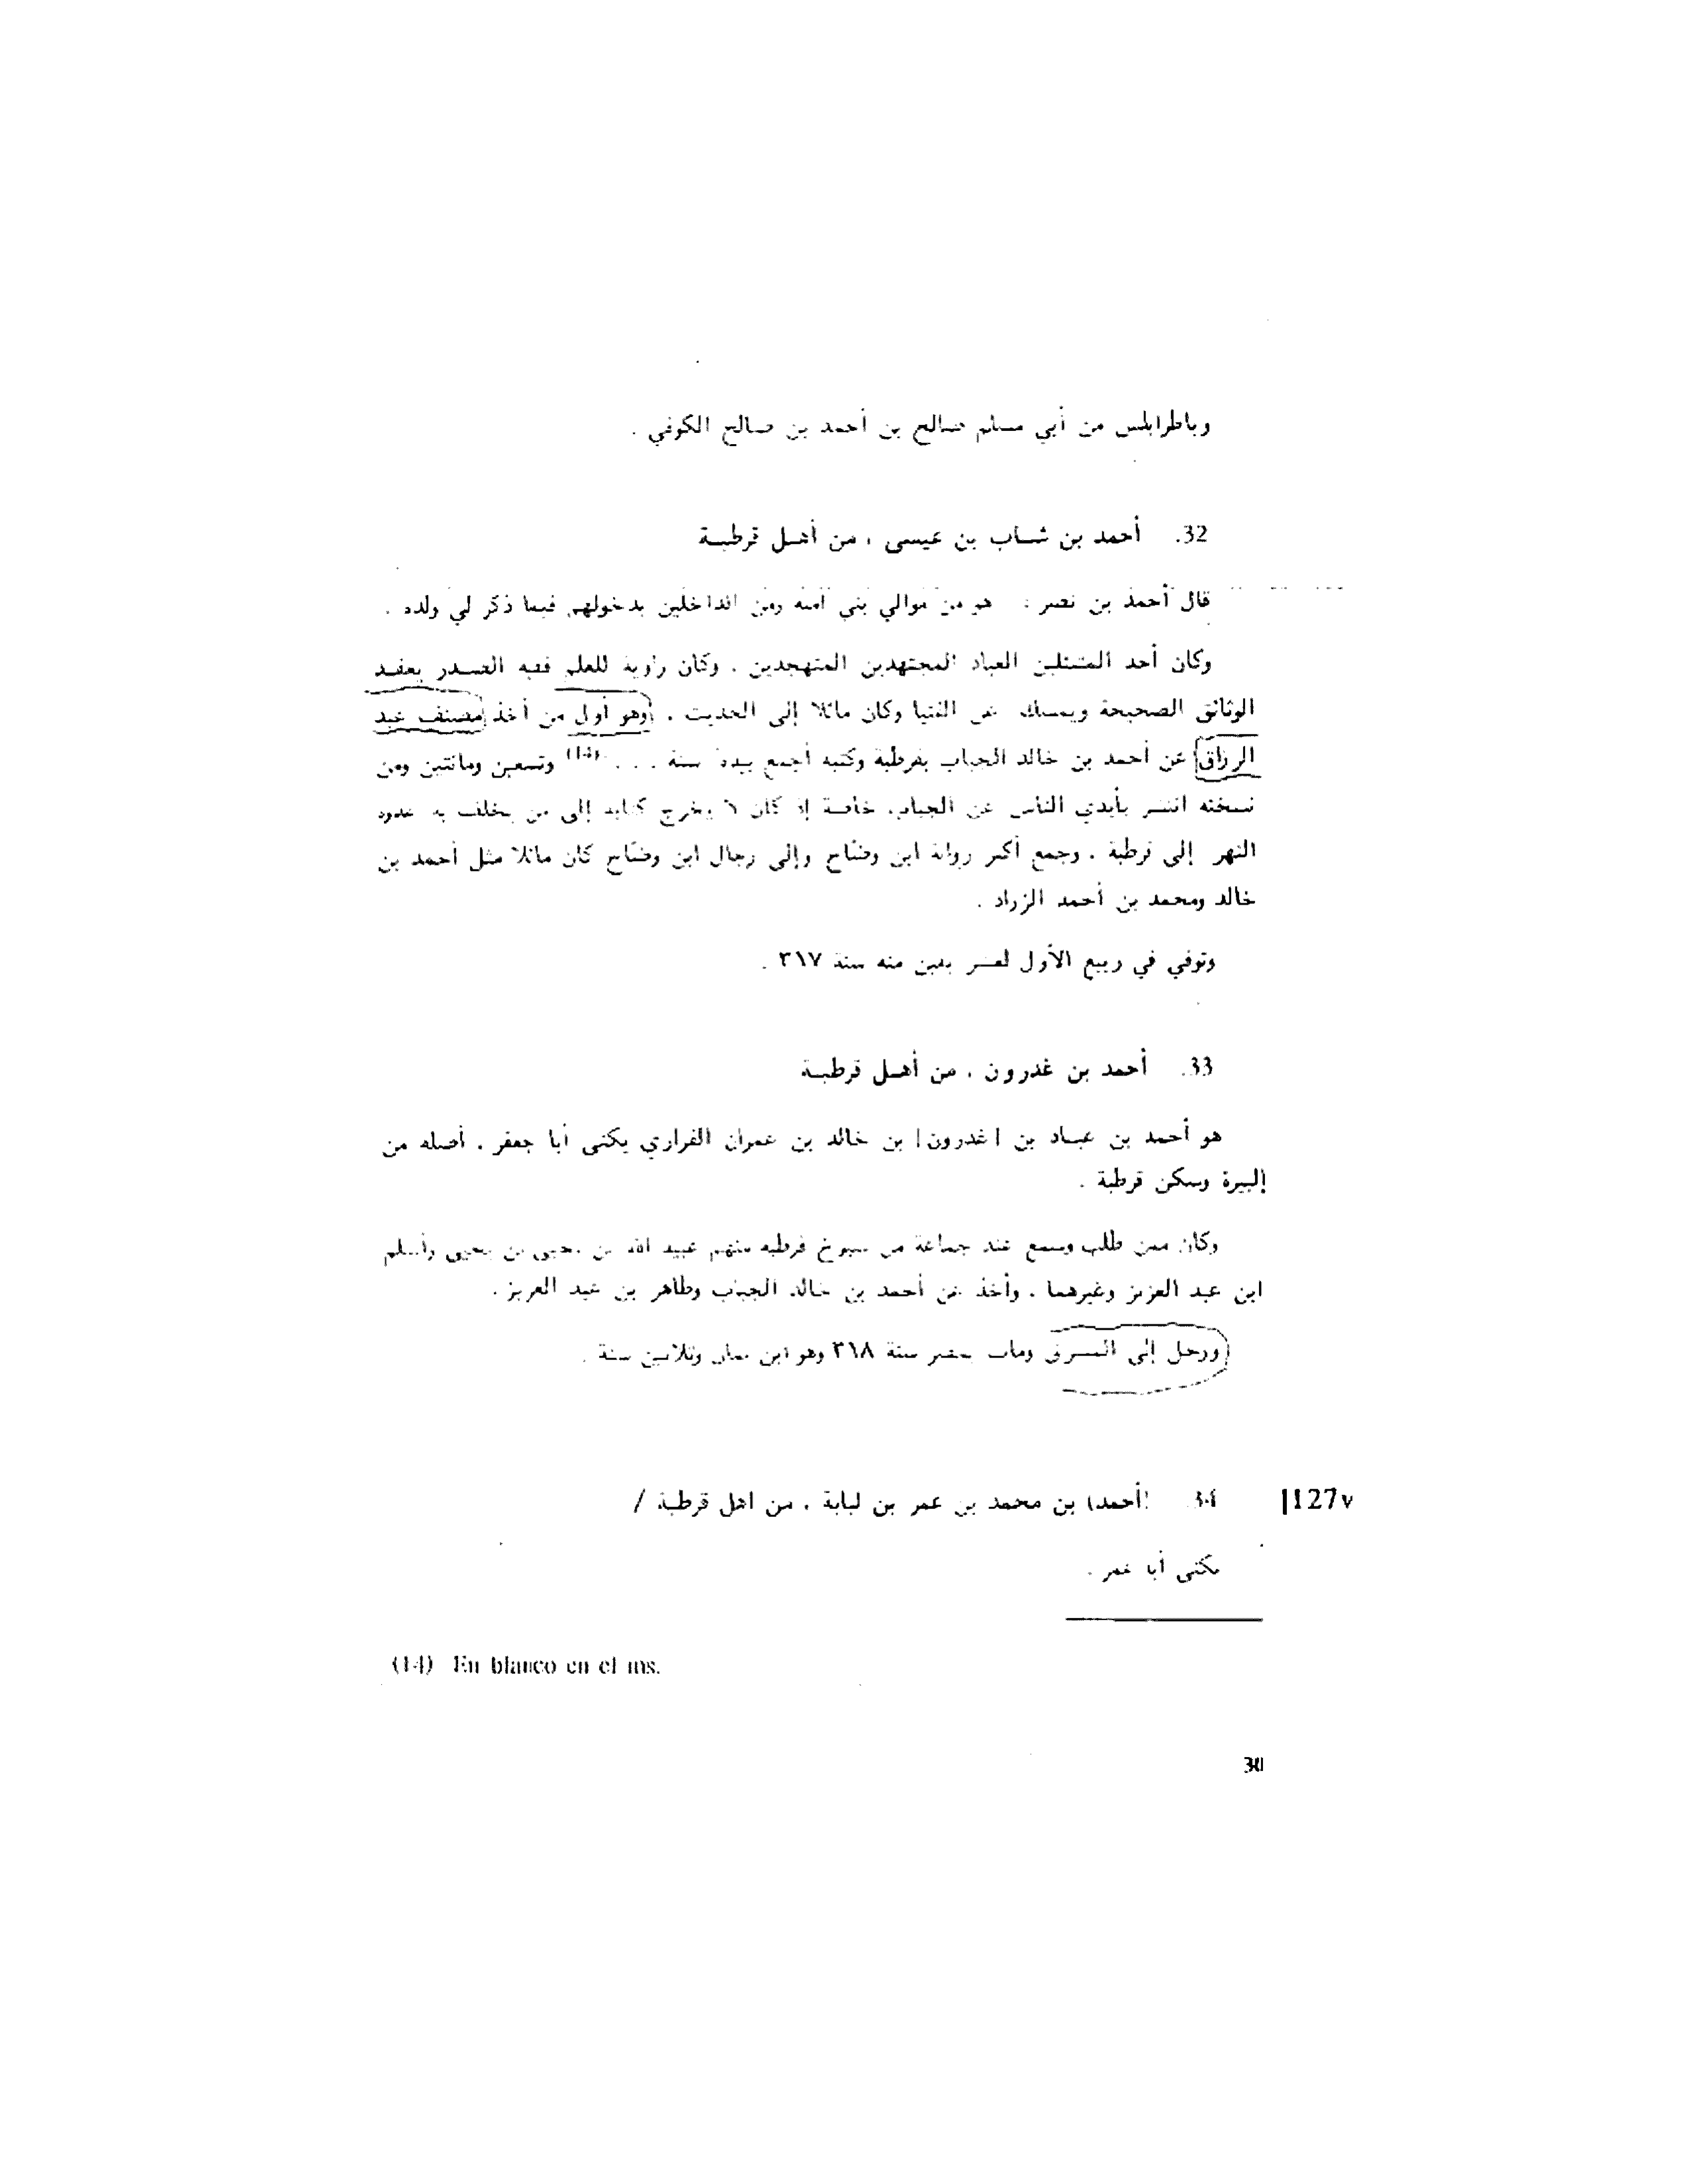 وباطرابلس من أبي مسلم صالح بن أحمد بن صالح الكوفي .
32. أحمد بن شاب بن عيسى ، من أهل قرطبة
قال أحمد بن نصر : هو من موالي بني أمية ومن الداخلين بدخولهم فيما ذكر لي ولده .
وكان أحد المتبتلين العباد المجتهدين المتهجدين . وكان راوية للعلم فقيه الصدر يعقد
الوثائق الصحيحة ويمسك عن الفتيا وكان مائلا إلى الحديث . وهو أول من أخذ مصنف عبد
الرزاق عن أحمد بن خالد الحباب بقرطبة وكتبه أجمع بيده سنة . . . (14) وتسعين ومائتين ومن
نسخته انتشر بأيدي الناس عن الجباب خاصة إذ كان لا يخرج كتابه إلى من يخلف به عدوة
النهر إلى قرطبة . وجمع أكثر رواية ابن وضّاح وإلى رجال ابن وضّاح كان مائلا مثل أحمد بن
خالد ومحمد بن أحمد الزراد .
وتوفي في ربيع الأول لعشر بقين منه سنة ٣١٧ .
33. أحمد بن غدرون ، من أهل قرطبة
هو أحمد بن عباد بن [غدرون] بن خالد بن عمران الفراري يكنى أبا جعفر . أصله من
إلبيرة وسكن قرطبة .
وكان ممن طلب وسمع عند جماعة من شيوخ قرطبة منهم عبيد الله بن يحيى بن يحيى وأسلم
ابن عبد العزيز وغيرهما . وأخذ عن أحمد بن خالد الجباب وطاهر بن عبد العزيز .
ورحل إلى المشرق ومات بمصر سنة ٣١٨ وهو ابن ثمان وثلاثين سنة .
34 (أحمد) بن محمد بن عمر بن لبابة ، من اهل قرطبة / |127v
يكنى أبا عمر .
(14) En blanco en el ms.
30